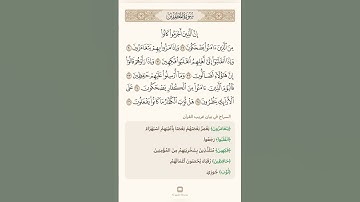 سورة المطففين
إن الذين أجرموا كانوا
من الذين ءامنوا يضحكون ٢٩ وإذا مروا بهم يتغامزون ٣٠
وإذا انقلبوا إلى أهلهم انقلبوا فكهين ٣١ وإذا رأوهم قالوا
إن هؤلاء لضالون ٣٢ وما أرسلوا عليهم حافظين ٣٣
فاليوم الذين ءامنوا من الكفار يضحكون ٣٤ على
الأرائك ينظرون ٣٥ هل ثوب الكفار ما كانوا يفعلون ٣٦
السراج في بيان غريب القرآن
﴿يتغامزون﴾ يغمز بعضهم بعضا بأعينهم استهزاء
﴿انقلبوا﴾ رجعوا
﴿فكهين﴾ متلذذين بسخريتهم من المؤمنين
﴿حافظين﴾ رقباء يحصون أعمالهم
﴿ثوب﴾ جوزي